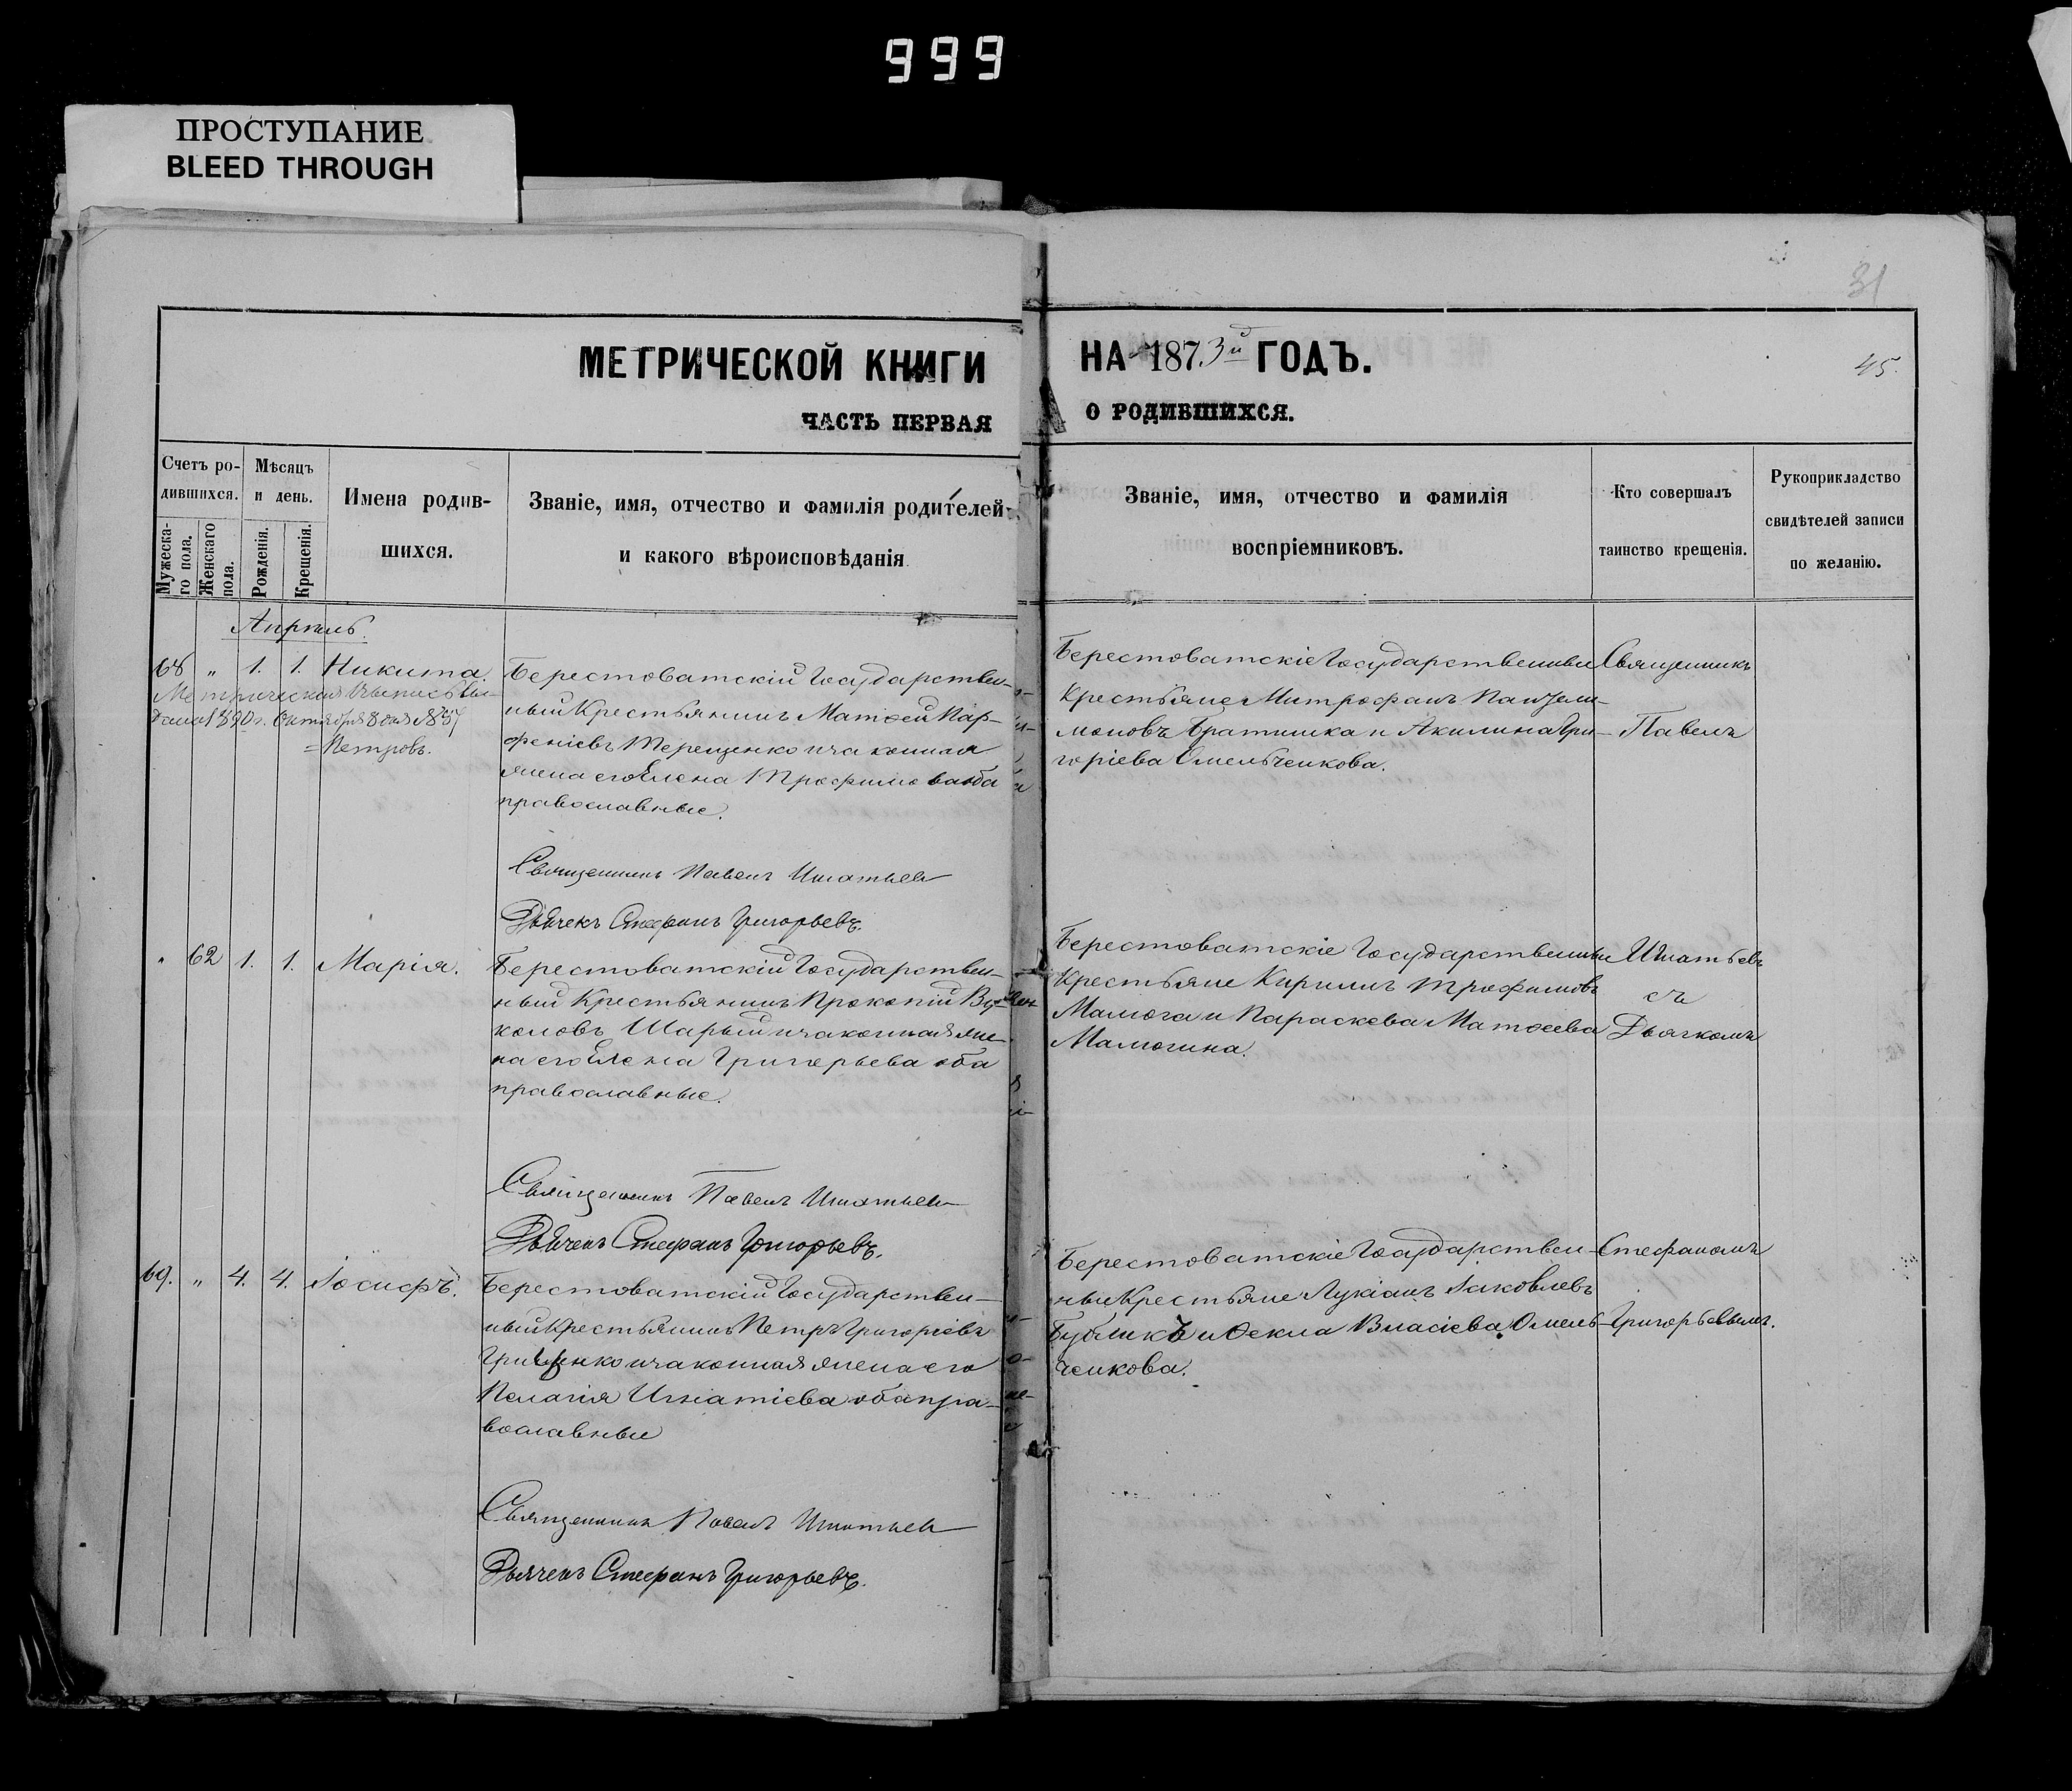 999
ПРОСТУПАНИЕ
BLEED THROUGH
31
МЕТРИЧЕСКОЙ КНИГИ
НА 1873й ГОДЪ.
45.
ЧАСТЬ ПЕРВАЯ
О РОДИВШИХСЯ.
Счетъ ро-
дившихся.
Мѣсяцъ
и день.
Мужеска-
го пола.
Женскаго
пола.
Рожденія.
Крещенія.
Имена родив-
шихся.
Званіе, имя, отчество и фамилія родителей
и какого вѣроисповѣданія
Званіе, имя, отчество и фамилія
воспріемниковъ.
Кто совершалъ
таинство крещенія.
Рукоприкладство
свидѣтелей записи
по желанію.
Апрѣль.
68 „ 1. 1. Никита.
Метрическая выпись вы-
дана 1890 г. Октября 8 дня № 37
Петровъ.
Берестоватскій Государствен-
ный Крестьянинъ Матѳей Пар-
феніевъ Терещенко и законная
жена его Елена Трофимова оба
православные.
Священникъ Павелъ Игнатьев
Дьячекъ Стефанъ Григорьевъ.
Берестоватскіе Государственные
Крестьяне Митрофанъ Пантеле-
моновъ Братишка и Акилина Гри-
горіева Омельченкова.
Священникъ
Павелъ
„ 62 1. 1. Марія.
Берестоватскій Государствен-
ный Крестьянинъ Прокопій Ву-
коловъ Шарый и законная же-
на его Елена Григорьева оба
православные.
Священникъ Павелъ Игнатьев
Дьячекъ Стефанъ Григорьевъ.
Берестоватскіе Государственные
Крестьяне Кирилъ Трофимовъ
Малюга и Параскева Матѳеева
Малюгина.
Игнатьевъ
съ
Дьячкомъ
69. „ 4. 4. Іосифъ.
Берестоватскій Государствен-
ный Крестьянинъ Петръ Григоріевъ
Гриценко и законная жена его
Пелагія Игнатіева оба пра-
вославные
Священникъ Павелъ Игнатьев
Дьячекъ Стефанъ Григорьевъ.
Берестоватскіе Государствен-
ные Крестьяне Лукіанъ Іаковлевъ
Бубликъ и Ѳекла Власіева Омель-
ченкова.
Стефаномъ
Григорьевымъ.